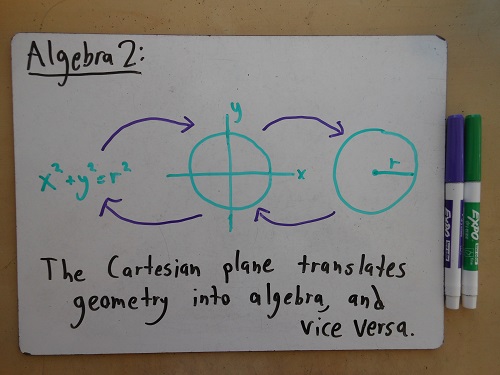 Algebra 2:
y
x² + y² = r²
x
r
The Cartesian plane translates
geometry into algebra, and
vice versa.
EXPO
EXPO